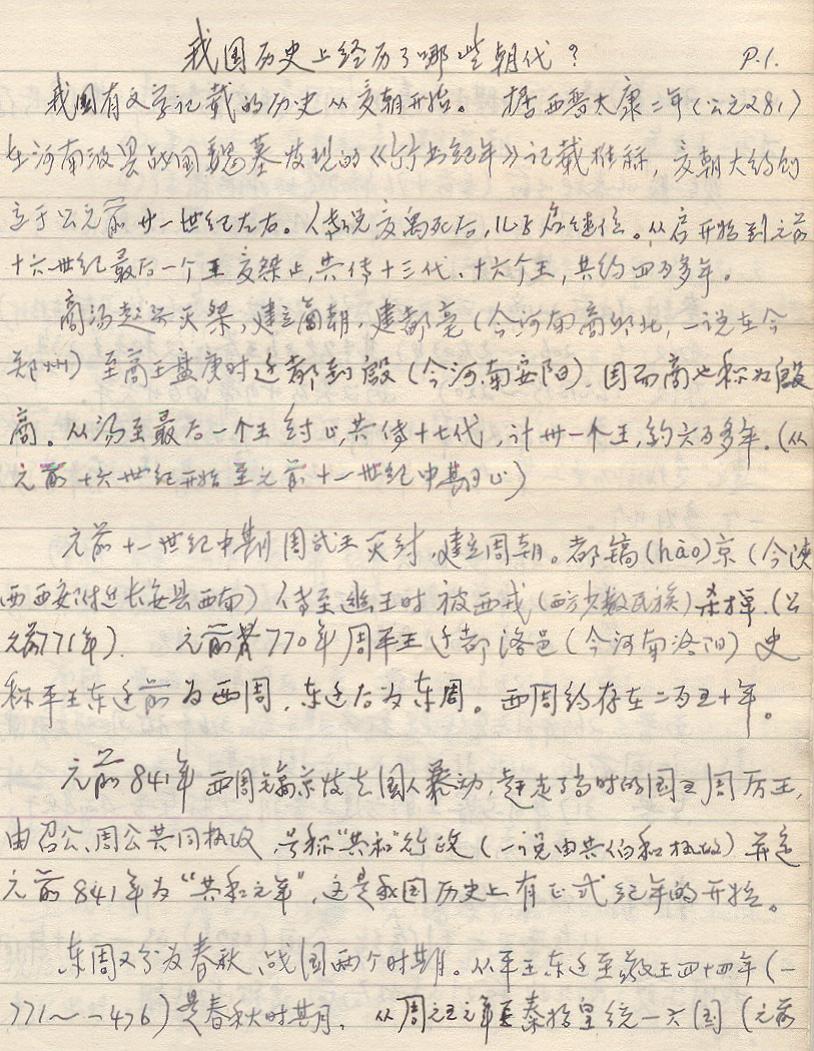 我国历史上经历了哪些朝代? P.1.
我国有文字记载的历史从夏朝开始。 据西晋太康二年(公元281)
在河南汲县战国魏墓发现的《竹书纪年》记载推称,夏朝大约创
立于公元前廿一世纪左右。传说夏禹死后,儿子启继位。从启开始到元前
十六世纪最后一个王夏桀止,共传十三代、十六个王,共约四百多年。
商汤起兵灭桀,建立商朝,建都亳(今河南商邱北,一说在今
郑州)至商王盘庚时迁都到殷(今河南安阳).因而商也称为殷
商。从汤至最后一个王纣止,共传十七代,计卅一个王,约六百多年.(从
元前十六世纪开始至元前十一世纪中期止)
元前十一世纪中期周武王灭纣,建立周朝。都镐(hào)京(今陕
西西安附近长安县西南)传至幽王时被西戎(西方少数民族)杀掉.(公
元前771年). 元前770年周平王迁都洛邑(今河南洛阳)史
称平王东迁前为西周,东迁后为东周。西周约存在二百五十年。
元前841年西周镐京发生国人暴动,赶走了当时的国王周厉王,
由召公、周公共同执政,号称"共和"行政(一说由共伯和执政)并定
元前841年为"共和元年",这是我国历史上有正式纪年的开始。
东周又分为春秋、战国两个时期。从平王东迁至敬王四十四年(一
771~一476)是春秋时期. 从周元王元年至秦始皇统一六国(元前